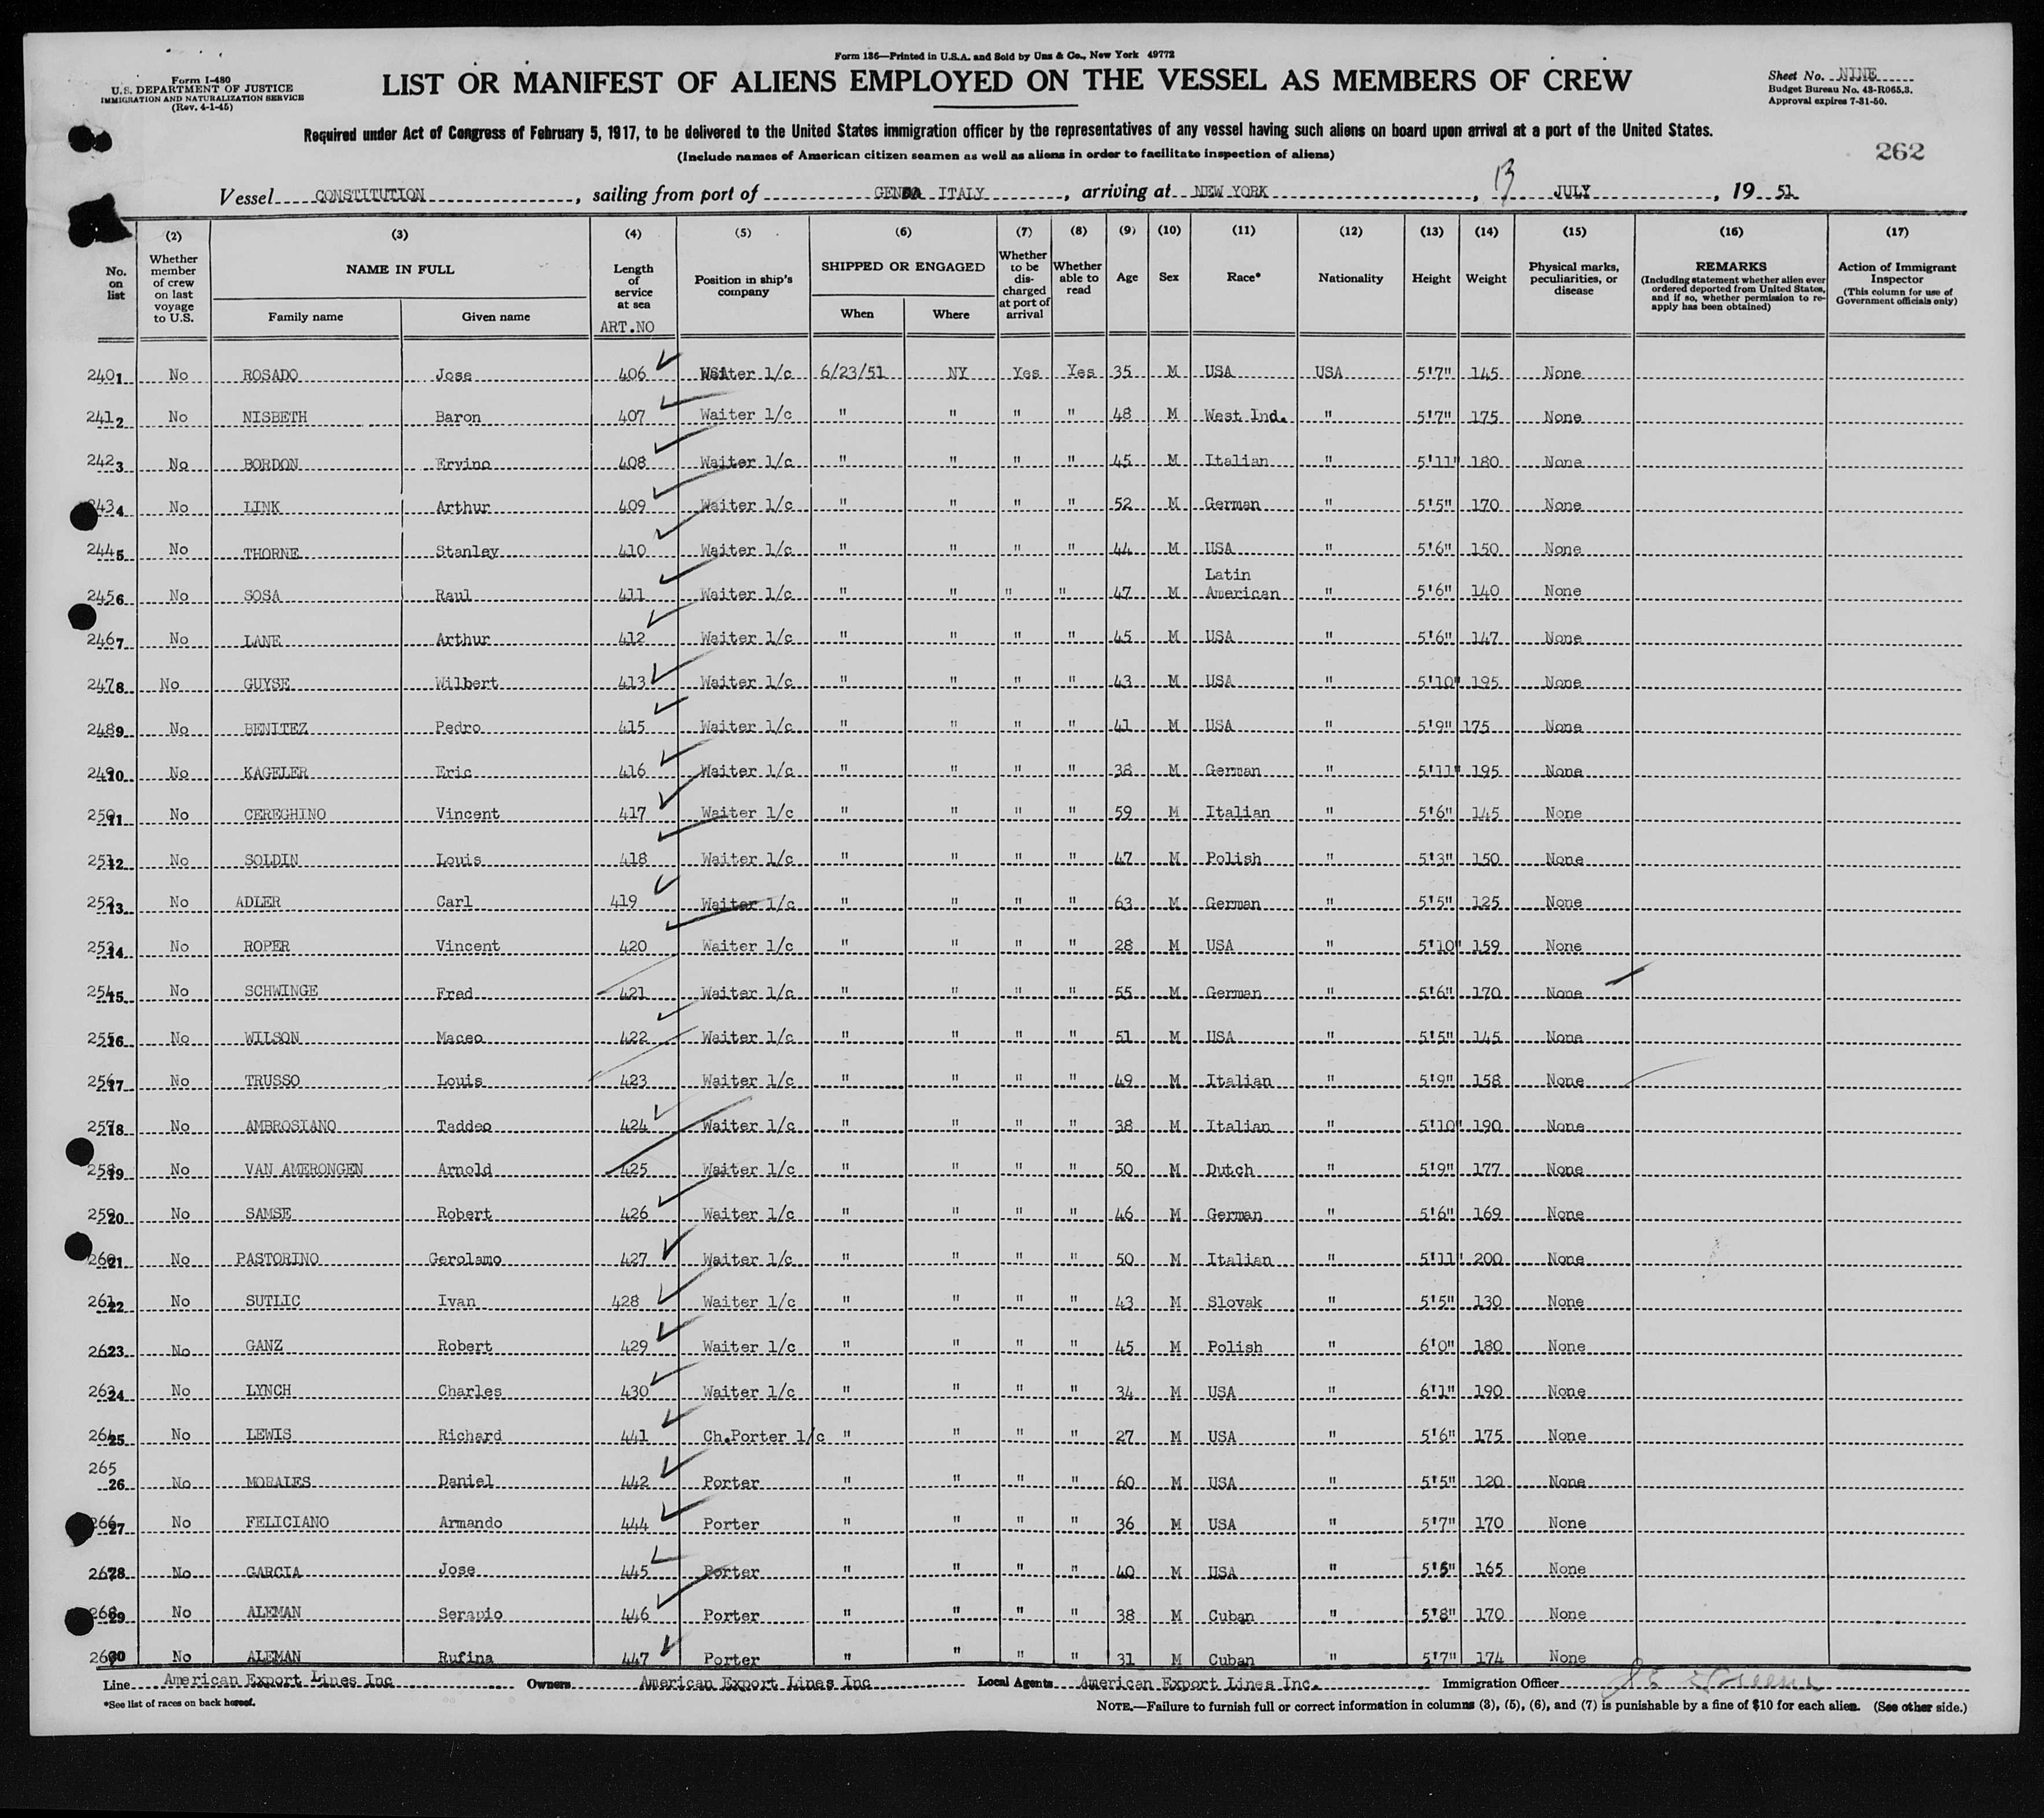 Form 136—Printed in U.S.A. and Sold by Unz & Co., New York 49772
Form I-480
U.S. DEPARTMENT OF JUSTICE
IMMIGRATION AND NATURALIZATION SERVICE
(Rev. 4-1-45)
LIST OR MANIFEST OF ALIENS EMPLOYED ON THE VESSEL AS MEMBERS OF CREW
Sheet No. NINE
Budget Bureau No. 43-R065.3.
Approval expires 7-31-50.
Required under Act of Congress of February 5, 1917, to be delivered to the United States immigration officer by the representatives of any vessel having such aliens on board upon arrival at a port of the United States.
(Include names of American citizen seamen as well as aliens in order to facilitate inspection of aliens)
262
Vessel CONSTITUTION, sailing from port of GENOA ITALY, arriving at NEW YORK, 13 JULY, 19 51
(2) (3) (4) (5) (6) (7) (8) (9) (10) (11) (12) (13) (14) (15) (16) (17)
No. on list
Whether member of crew on last voyage to U.S.
NAME IN FULL
Family name Given name
Length of service at sea
ART.NO
Position in ship's company
SHIPPED OR ENGAGED
When Where
Whether to be discharged at port of arrival
Whether able to read
Age
Sex
Race*
Nationality
Height
Weight
Physical marks, peculiarities, or disease
REMARKS
(Including statement whether alien ever ordered deported from United States, and if so, whether permission to reapply has been obtained)
Action of Immigrant Inspector
(This column for use of Government officials only)
240 1 No ROSADO Jose 406 Waiter 1/c 6/23/51 NY Yes Yes 35 M USA USA 5'7" 145 None
241 2 No NISBETH Baron 407 Waiter 1/c " " " " 48 M West Ind. " 5'7" 175 None
242 3 No BORDON Ervino 408 Waiter 1/c " " " " 45 M Italian " 5'11" 180 None
243 4 No LINK Arthur 409 Waiter 1/c " " " " 52 M German " 5'5" 170 None
244 5 No THORNE Stanley 410 Waiter 1/c " " " " 44 M USA " 5'6" 150 None
245 6 No SOSA Raul 411 Waiter 1/c " " " " 47 M Latin American " 5'6" 140 None
246 7 No LANE Arthur 412 Waiter 1/c " " " " 45 M USA " 5'6" 147 None
247 8 No GUYSE Wilbert 413 Waiter 1/c " " " " 43 M USA " 5'10" 195 None
248 9 No BENITEZ Pedro 415 Waiter 1/c " " " " 41 M USA " 5'9" 175 None
249 10 No KAGELER Eric 416 Waiter 1/c " " " " 38 M German " 5'11" 195 None
250 11 No CEREGHINO Vincent 417 Waiter 1/c " " " " 59 M Italian " 5'6" 145 None
251 12 No SOLDIN Louis 418 Waiter 1/c " " " " 47 M Polish " 5'3" 150 None
252 13 No ADLER Carl 419 Waiter 1/c " " " " 63 M German " 5'5" 125 None
253 14 No ROPER Vincent 420 Waiter 1/c " " " " 28 M USA " 5'10" 159 None
254 15 No SCHWINGE Fred 421 Waiter 1/c " " " " 55 M German " 5'6" 170 None
255 16 No WILSON Maceo 422 Waiter 1/c " " " " 51 M USA " 5'5" 145 None
256 17 No TRUSSO Louis 423 Waiter 1/c " " " " 49 M Italian " 5'9" 158 None
257 18 No AMBROSIANO Taddeo 424 Waiter 1/c " " " " 38 M Italian " 5'10" 190 None
258 19 No VAN AMERONGEN Arnold 425 Waiter 1/c " " " " 50 M Dutch " 5'9" 177 None
259 20 No SAMSE Robert 426 Waiter 1/c " " " " 46 M German " 5'6" 169 None
260 21 No PASTORINO Gerolamo 427 Waiter 1/c " " " " 50 M Italian " 5'11" 200 None
261 22 No SUTLIC Ivan 428 Waiter 1/c " " " " 43 M Slovak " 5'5" 130 None
262 23 No GANZ Robert 429 Waiter 1/c " " " " 45 M Polish " 6'0" 180 None
263 24 No LYNCH Charles 430 Waiter 1/c " " " " 34 M USA " 6'1" 190 None
264 25 No LEWIS Richard 441 Ch.Porter 1/c " " " " 27 M USA " 5'6" 175 None
265 26 No MORALES Daniel 442 Porter " " " " 60 M USA " 5'5" 120 None
266 27 No FELICIANO Armando 444 Porter " " " " 36 M USA " 5'7" 170 None
267 28 No GARCIA Jose 445 Porter " " " " 40 M USA " 5'5" 165 None
268 29 No ALEMAN Serapio 446 Porter " " " " 38 M Cuban " 5'8" 170 None
269 30 No ALEMAN Rufina 447 Porter " " " " 31 M Cuban " 5'7" 174 None
Line American Export Lines Inc Owners American Export Lines Inc Local Agents American Export Lines Inc. Immigration Officer
*See list of races on back hereof.
NOTE.—Failure to furnish full or correct information in columns (3), (5), (6), and (7) is punishable by a fine of $10 for each alien. (See other side.)